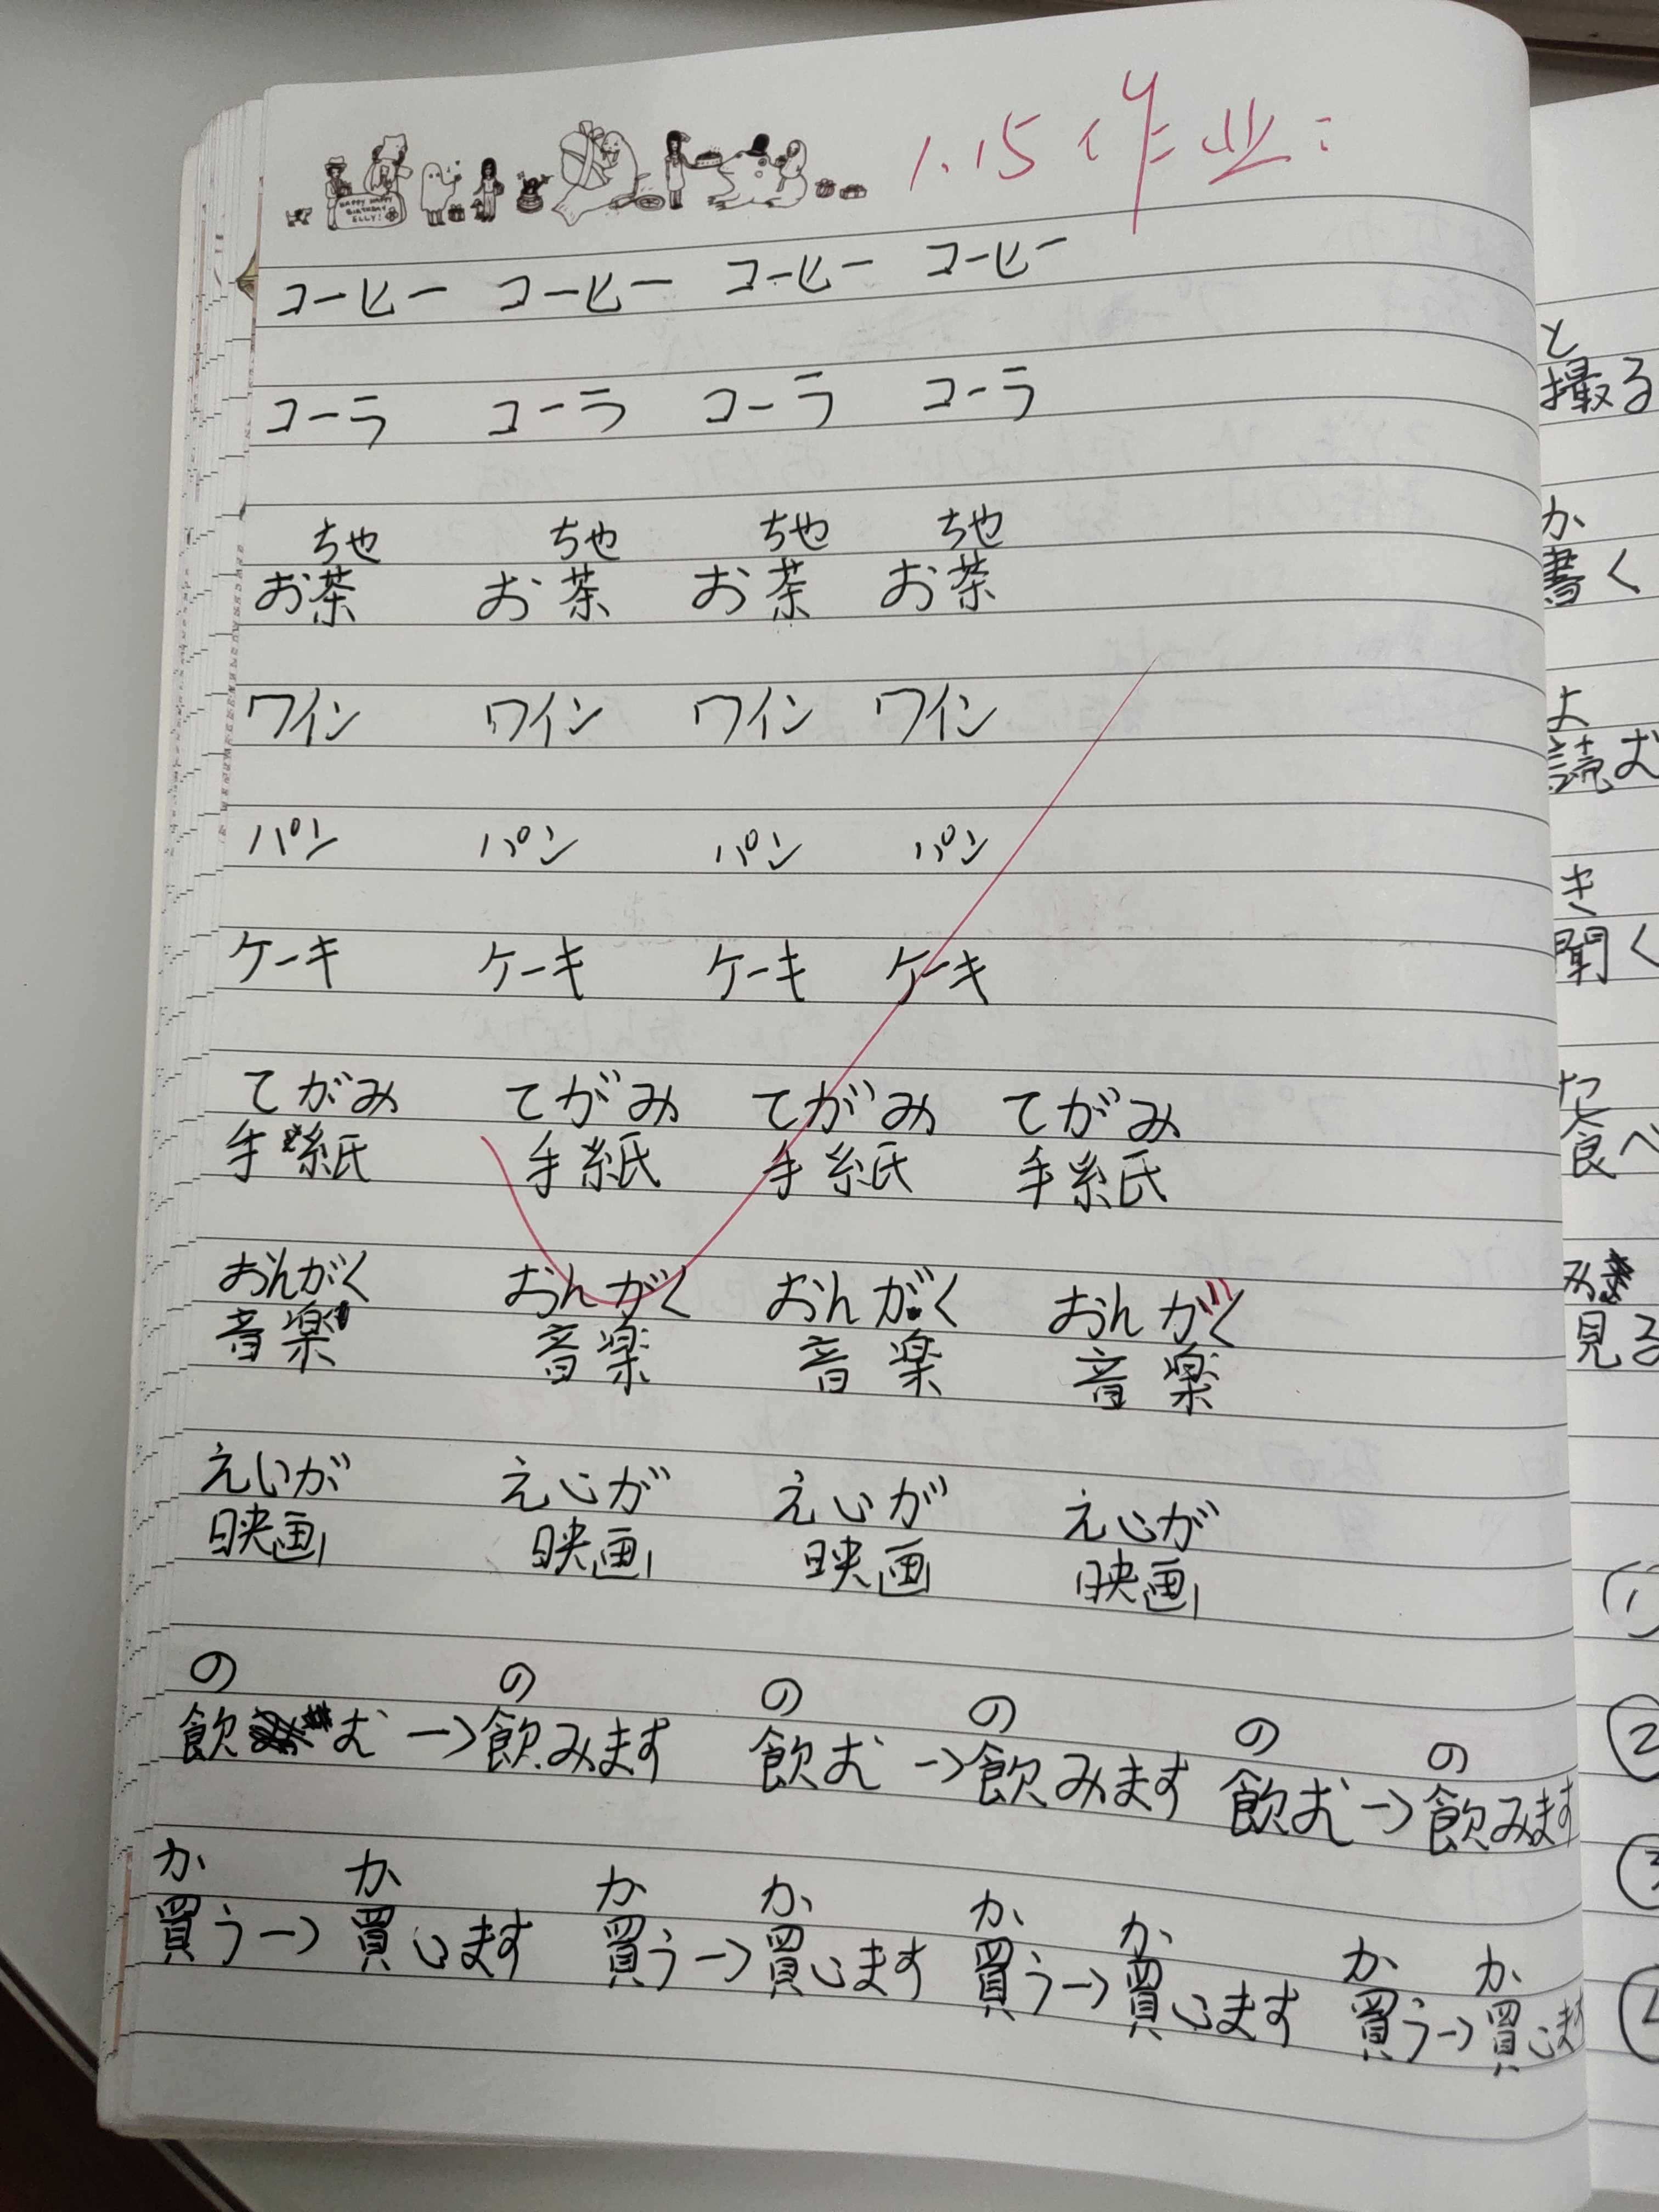 HAPPY HAPPY
BIRTHDAY
ELLY!
1.15 作业:
コーヒー コーヒー コーヒー コーヒー
コーラ コーラ コーラ コーラ
ちゃ ちゃ ちゃ ちゃ
お茶 お茶 お茶 お茶
ワイン ワイン ワイン ワイン
パン パン パン パン
ケーキ ケーキ ケーキ ケーキ
てがみ てがみ てがみ てがみ
手紙 手紙 手紙 手紙
おんがく おんがく おんがく おんがく
音楽 音楽 音楽 音楽
えいが えいが えいが えいが
映画 映画 映画 映画
の の の の の の
飲む→飲みます 飲む→飲みます 飲む→飲みます
か か か か か か か か
買う→買います 買う→買います 買う→買います 買う→買いま
と
撮る
か
書く
よ
読む
き
聞く
た
食べ
み
見る
①
②
③
④